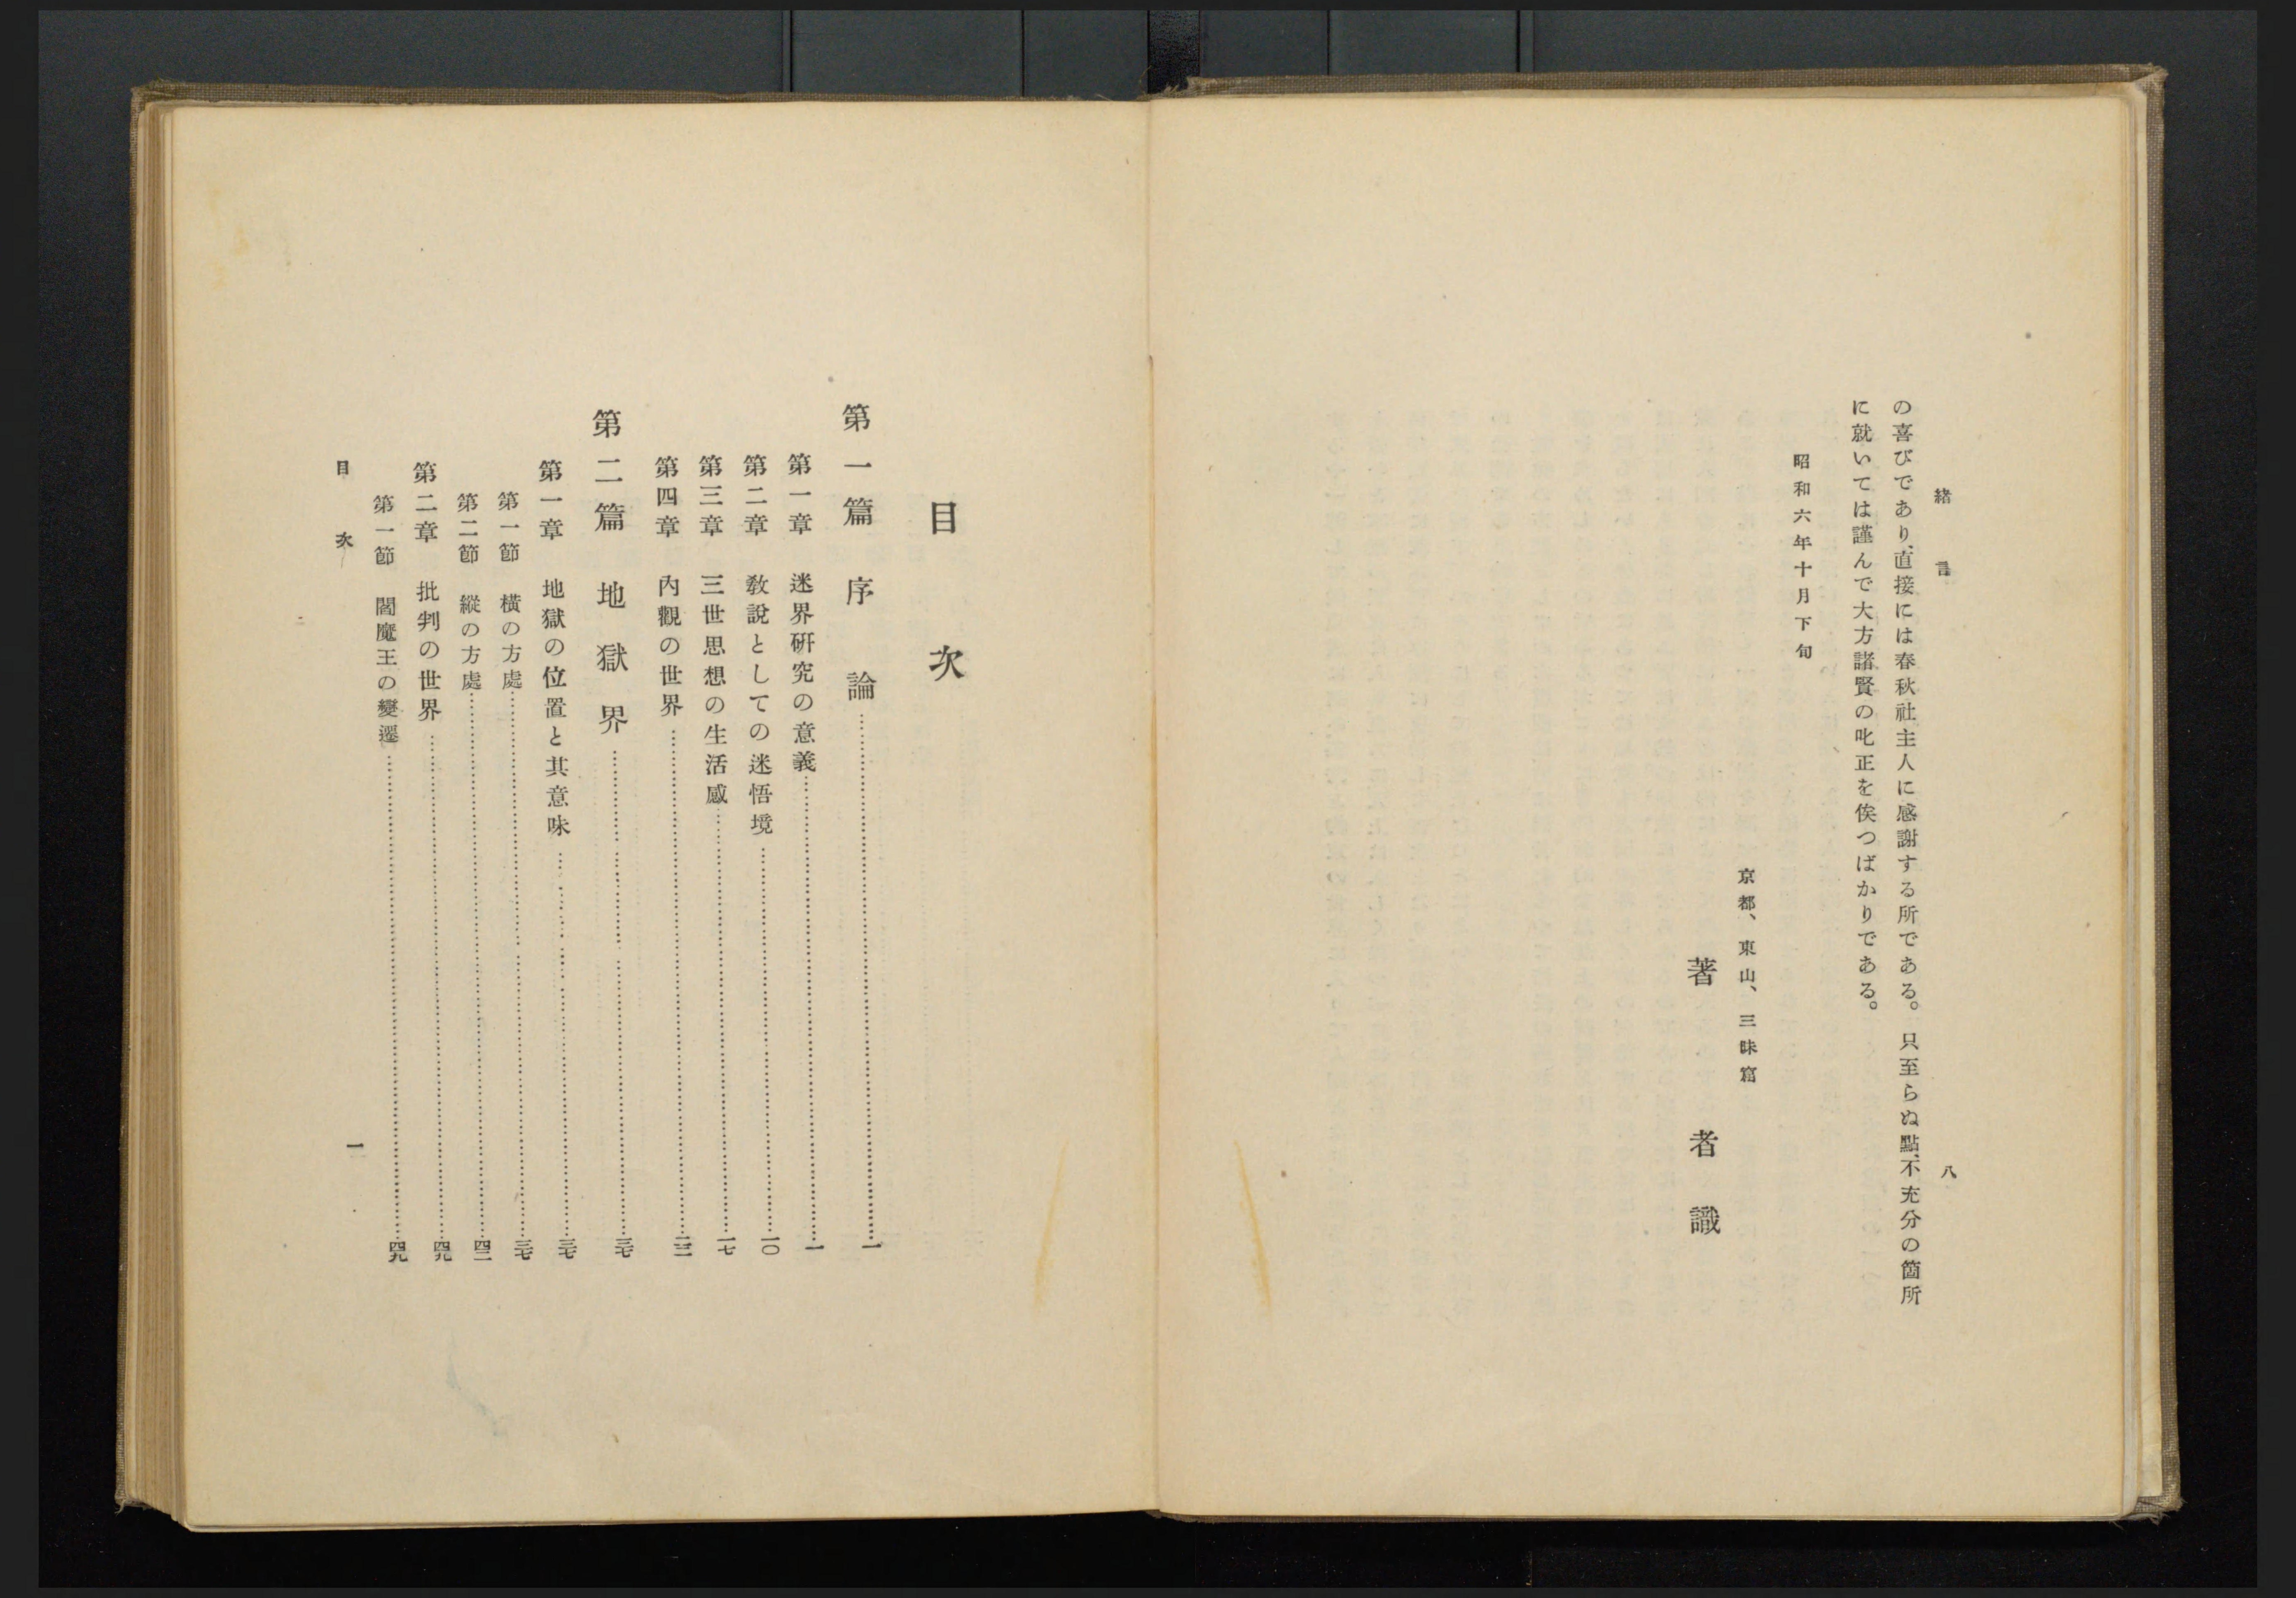 緒言
八
の喜びであり、直接には春秋社主人に感謝する所である。只至らぬ點、不充分の箇所
に就いては謹んで大方諸賢の叱正を俟つばかりである。
昭和六年十月下旬
京都、東山、三昧窟
著者識
目次
第一篇 序論……一
第一章 迷界硏究の意義……一
第二章 敎說としての迷悟境……一〇
第三章 三世思想の生活感……一七
第四章 內觀の世界……二三
第二篇 地獄界……三七
第一章 地獄の位置と其意味……三七
第一節 橫の方處……三七
第二節 縱の方處……四二
第二章 批判の世界……四九
第一節 閻魔王の變遷……四九
目次
一